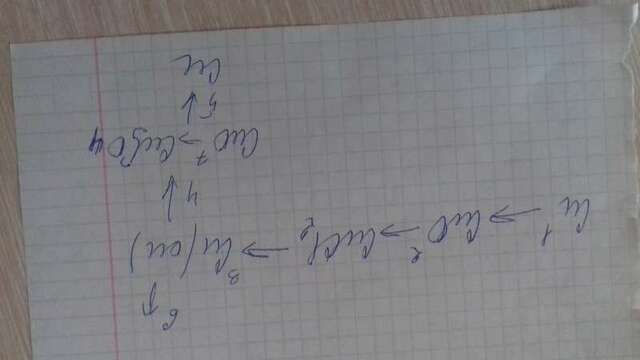 6
Cu 1→ CuO 2→ CuCl₂ 3→ Cu(OH)
4↓
CuO 7→ CuSO4
5↓
Cu